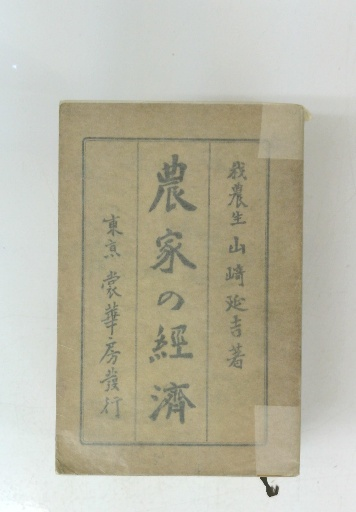 我農生 山崎延吉著
農家の經濟
東京 裳華房發行